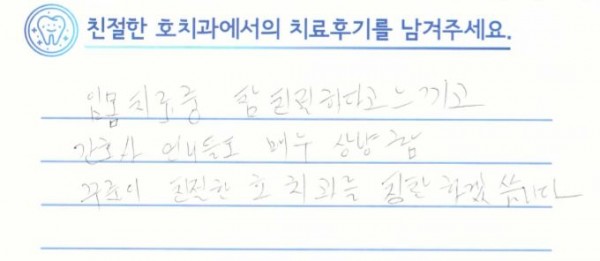 친절한 호치과에서의 치료후기를 남겨주세요.
잇몸 치료중 참 친절하다고 느끼고
간호사 언니들도 매우 상냥함
꾸준이 친절한 호 치과를 칭찬 하겠 씁니다